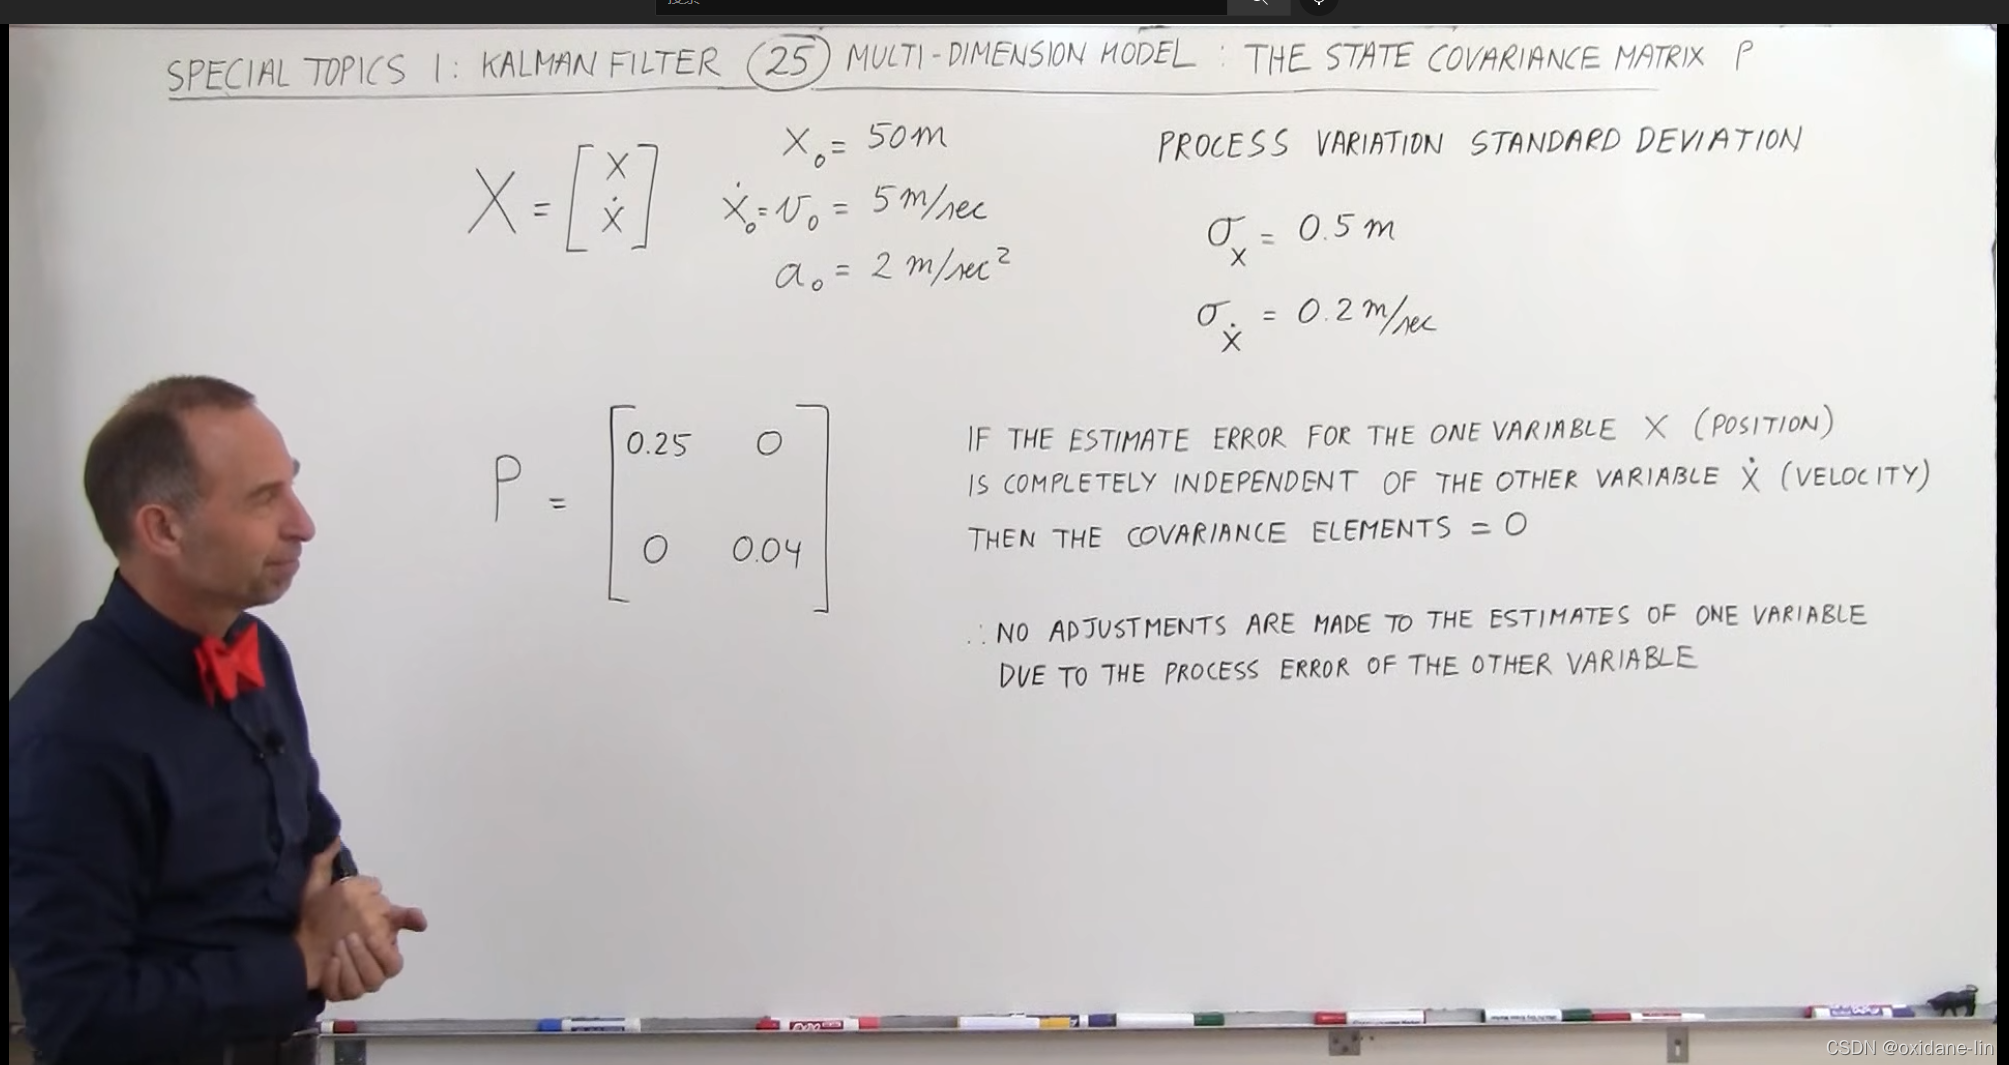 搜索
SPECIAL TOPICS 1: KALMAN FILTER (25) MULTI-DIMENSION MODEL : THE STATE COVARIANCE MATRIX P
X = [ X
Ẋ ]
X₀ = 50 m
Ẋ₀ = v₀ = 5 m/sec
a₀ = 2 m/sec²
PROCESS VARIATION STANDARD DEVIATION
σ_X = 0.5 m
σ_Ẋ = 0.2 m/sec
P = [ 0.25 0
0 0.04 ]
IF THE ESTIMATE ERROR FOR THE ONE VARIABLE X (POSITION)
IS COMPLETELY INDEPENDENT OF THE OTHER VARIABLE Ẋ (VELOCITY)
THEN THE COVARIANCE ELEMENTS = 0
∴ NO ADJUSTMENTS ARE MADE TO THE ESTIMATES OF ONE VARIABLE
DUE TO THE PROCESS ERROR OF THE OTHER VARIABLE
CSDN @oxidane-lin